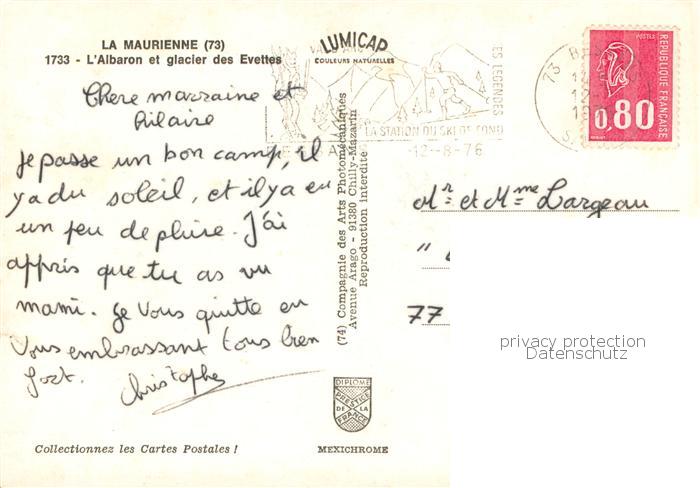 LA MAURIENNE (73)
1733 - L'Albaron et glacier des Evettes
LUMICAP
COULEURS NATURELLES
ES LEGENDES
LA STATION DU SKI DE FOND
12-8-76
73
POSTES
REPUBLIQUE FRANÇAISE
0,80
Chere marraine et
hilaire
Je passe un bon camp, il
ya du soleil, et il ya eu
un peu de pluire. J'ai
appris que tu as vu
mami. Je vous quitte en
vous embrassant tous bien
fort.
Christophe
(74) Compagnie des Arts Photomécaniques
Avenue Arago - 91380 Chilly-Mazarin
Reproduction interdite
Mr et Mme Largeau
"
77
privacy protection
Datenschutz
DIPLOME
PRESTIGE
DE LA
FRANCE
Collectionnez les Cartes Postales !
MEXICHROME